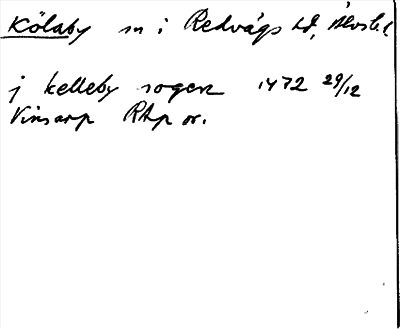 Kölaby sn i Redvägs hd, Älvsb.l
j kelleby sogen 1472 29/12
Vinsarp RAp or.